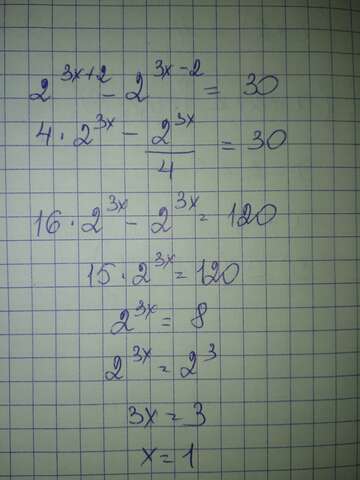 2^(3x+2) - 2^(3x-2) = 30
4 · 2^(3x) - 2^(3x)/4 = 30
16 · 2^(3x) - 2^(3x) = 120
15 · 2^(3x) = 120
2^(3x) = 8
2^(3x) = 2^3
3x = 3
x = 1